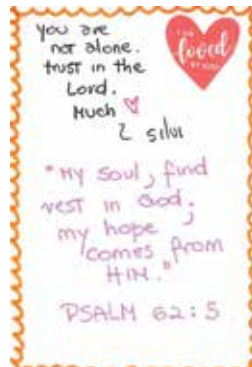 you are
not alone.
trust in the
Lord.
Much
silvi
loved
"My soul, find
rest in God;
my hope
comes from
HIM."
PSALM 62:5